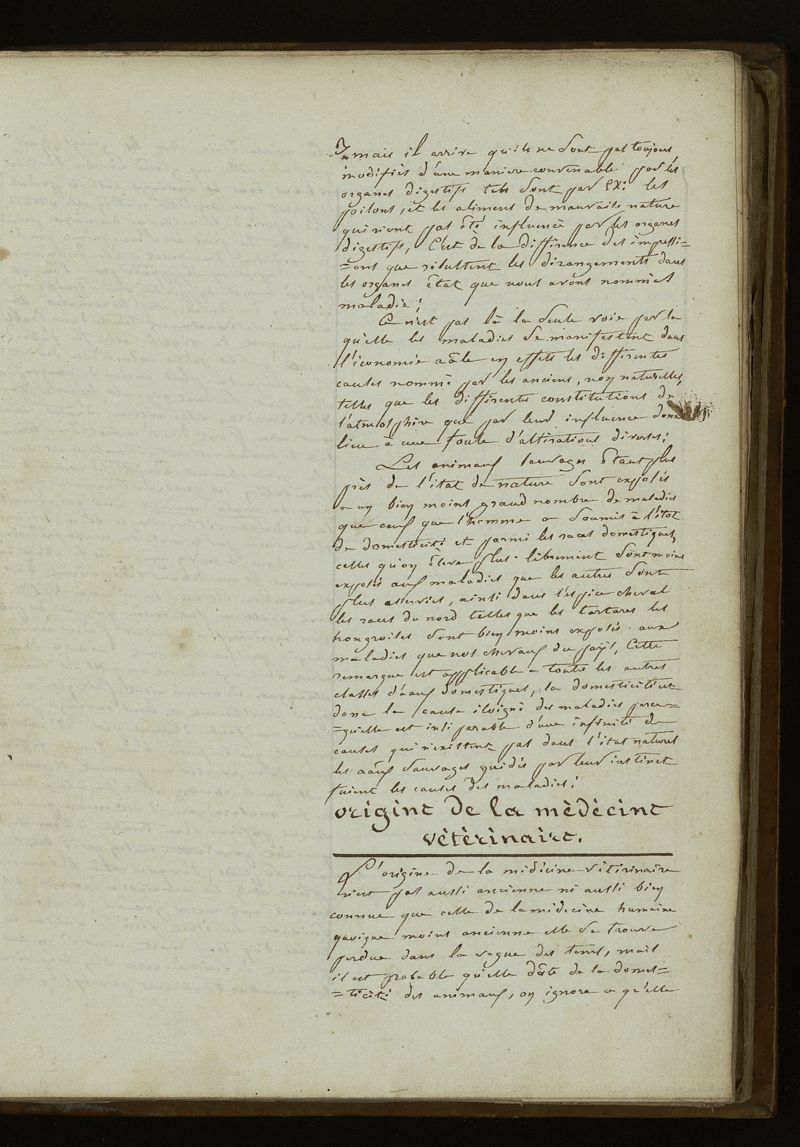 mais il arrive qu'ils ne sont pas toujours
modifiés d'une maniere convenable par les
organes digestifs tels sont par EX: les
poisons, et les aliments de mauvaise nature
qui n'ont pas été influencé par les organes
digestifs, C'est de la différence des impressi=
=ons que résultent les dérangements dans
les organes état que nous avons nommés
maladie;
Ce n'est pas là la seule voie par la
qu'elle les maladies se manifestent dans
l'économie en effets les différentes
causes nommé par les anciens, non naturelles,
telles que les différentes constitutions de
l'atmosphère que par leur influence donne
lieu à une foule d'altérations diverses;
Les animaux sauvages étant plus
près de l'état de nature sont exposés
a un bien moins grand nombre de maladies
que ceux que l'homme a soumis à l'état
de domesticité et parmi les races domestiques
celles qu'on élève plus librement sont moins
exposés aux maladies que les autres sont
plus asservies, ainsi dans l'espèce cheval
les races du nord telles que les tartares les
hongroises sont bien moins exposés aux
maladies que nos chevaux du pays, Cette
remarque est applicable a toutes les autres
classes d'aaux domestiques, la domesticité est
donc la cause éloigné des maladies parce=
=qu'elle est inséparable d'une infinité de
causes qui n'existent pas dans l'état naturel
les aaux sauvages guidés par leur instinct
fuient les causes des maladies;
origine de la mèdècine
vètèrinaire.
L'origine de la médicine vétérinaire
n'est pas aussi ancienne ni aussi bien
connue que celle de la médecine humaine
quoique moins ancienne elle se trouve
perdue dans la vague des tems, mais
il est probable qu'elle date de la domes=
=ticité des animaux, on ignore a qu'elle